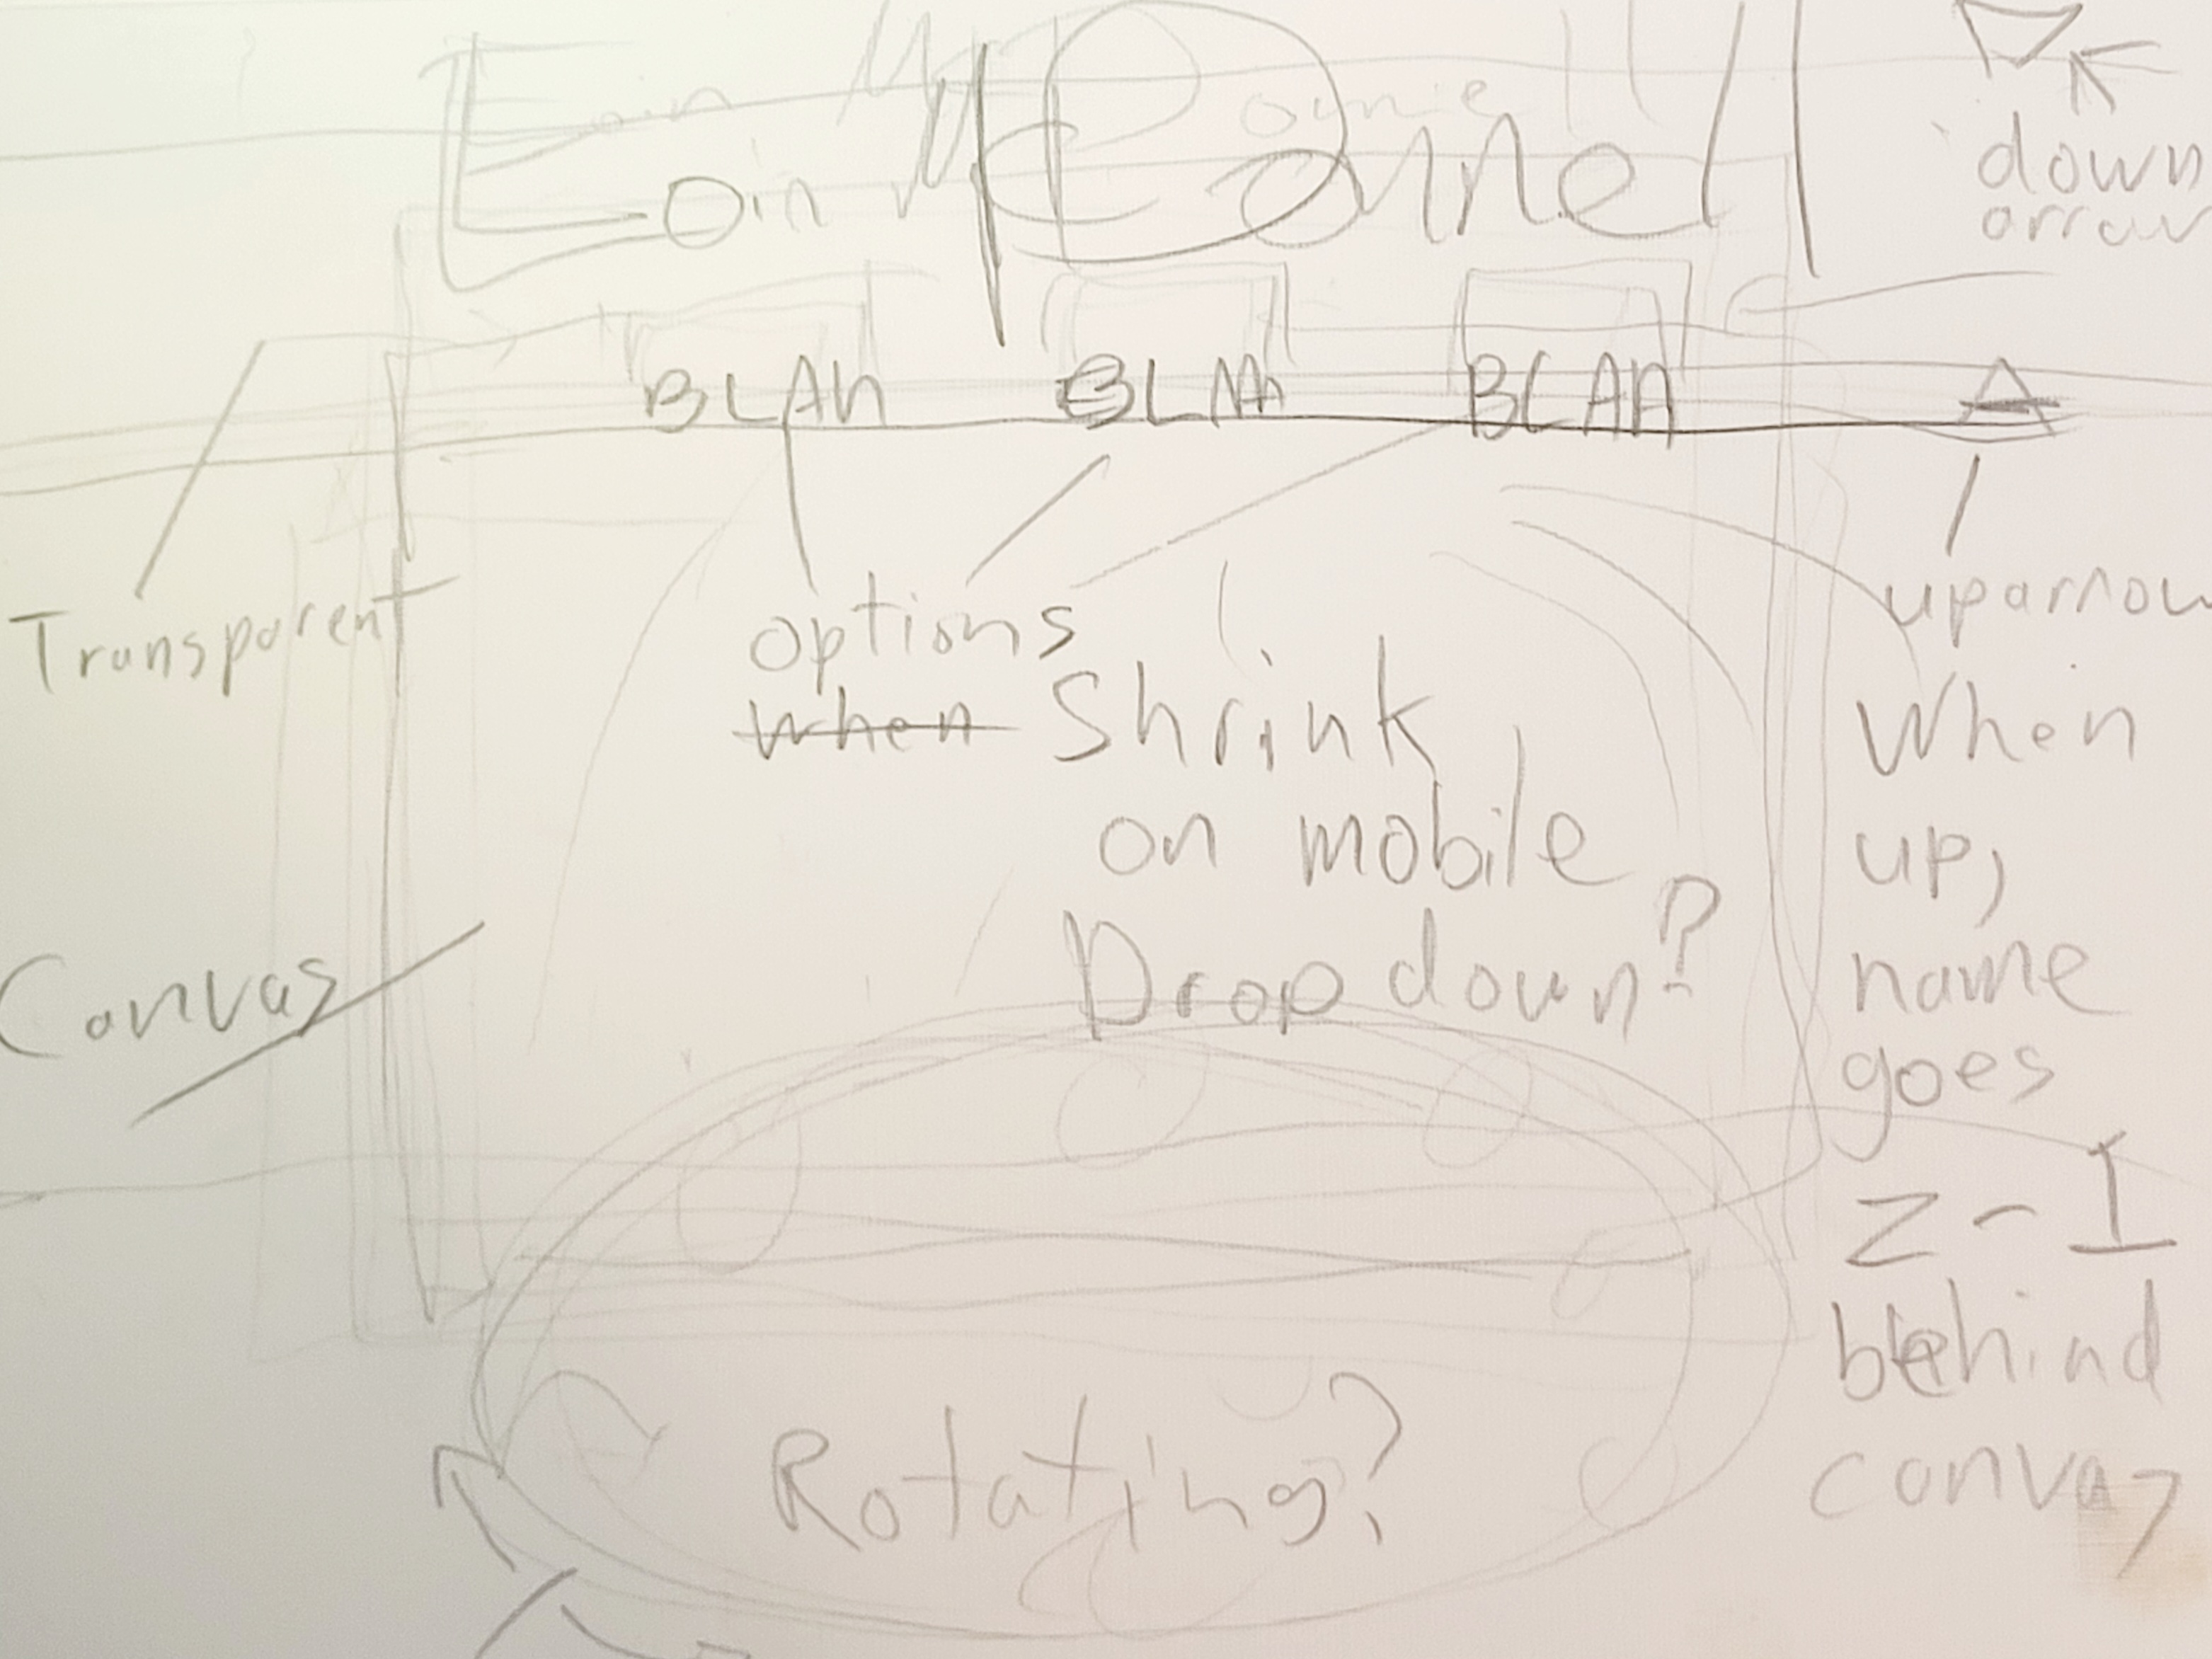 Eoin McConnell
down
arrow
BLAH BLAH BLAH
Transparent
options
when Shrink
on mobile
Drop down?
uparrow
When
up,
name
goes
z-1
behind
canvas
Canvas
Rotating?